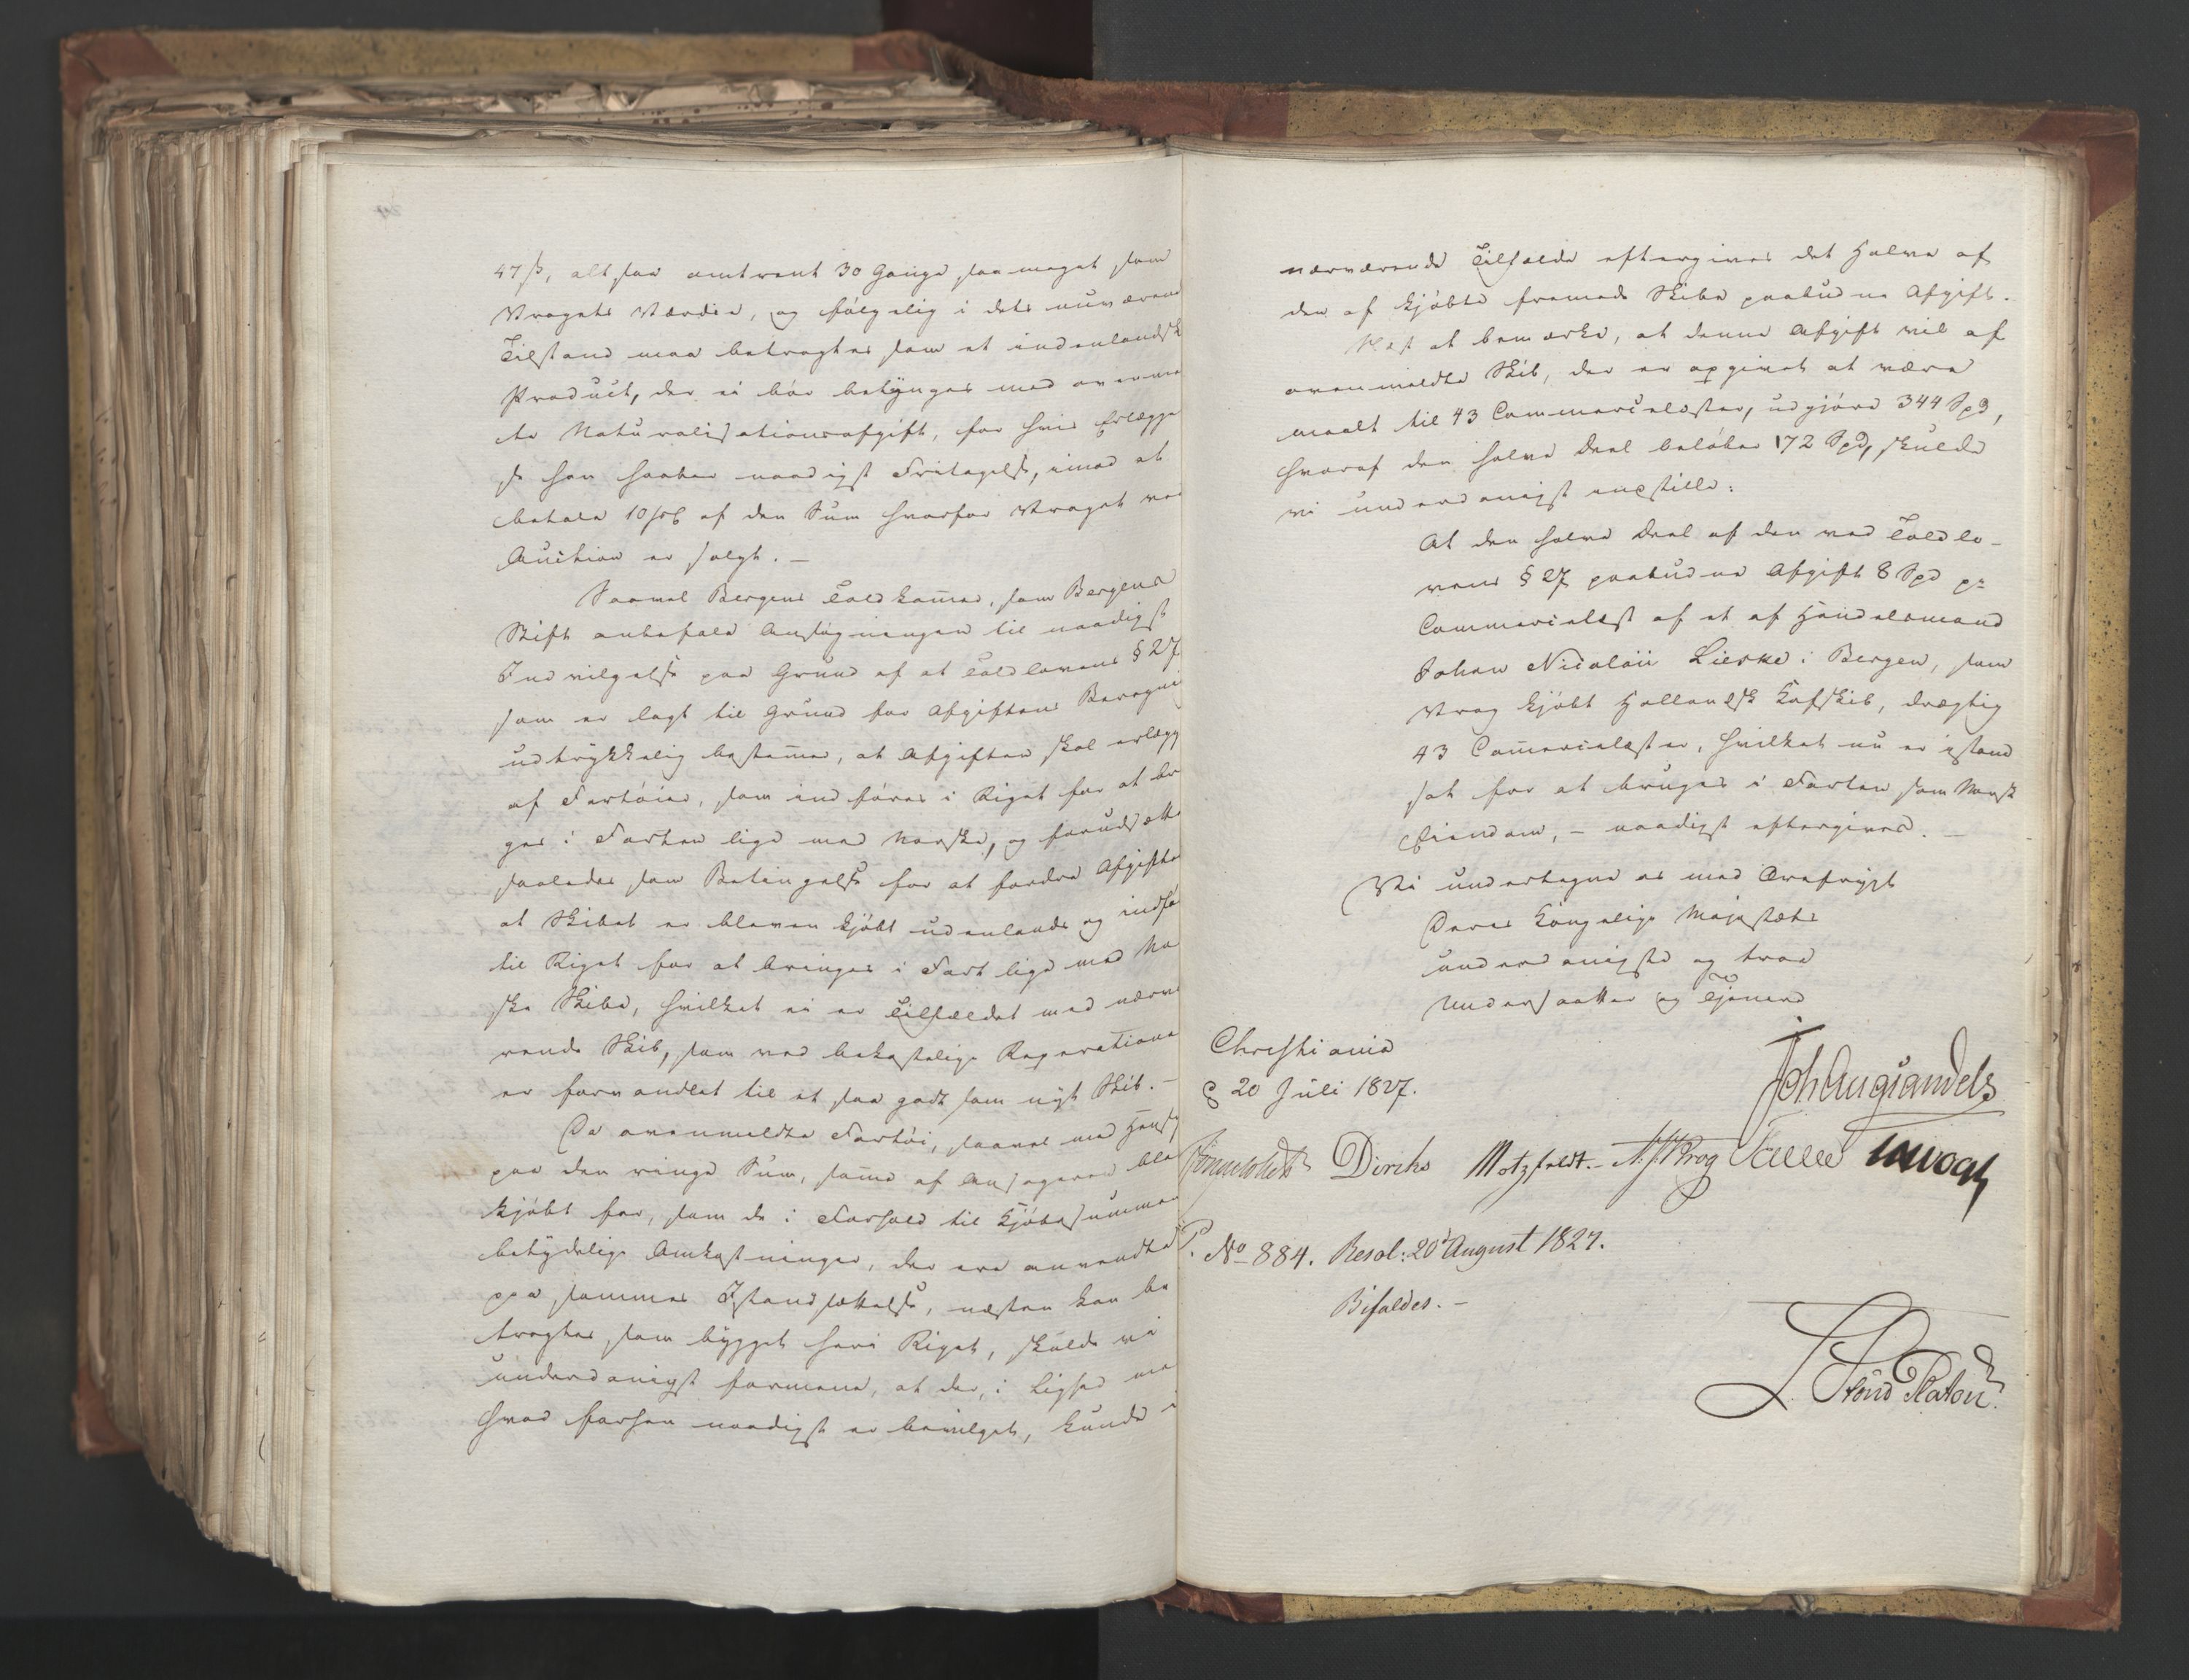 47 ß, alt saa omtrent 30 Gange saa meget som
Vragets Værdie, og følgelig i dets nuværend
Tilstand maa betragtes som et indenlandsk
Product, der ei bør betynges med ovenme
te Naturalisationsafgift, for hvis Erlægge
se han haaber naadigst Fritagelse, imod at
betale 10 pCt af den Sum hvorfor Vraget ved
Auction er solgt. —
Saavel Bergens Toldkamer, som Bergens
Stift anbefale Ansøgningen til naadigst
Indvilgelse paa Grund af at Toldlovens § 27
som er lagt til Grund for Afgiftens Beregni
udtrykkelig bestemer, at Afgiften skal erlægg
af Fartøier, som indføres i Riget for at br
ges i Farten lige med Norske, og forudsætte
saaledes som Betingelse for at fordre Afgifte
at Skibet er bleven kjøbt udenlands og indfø
til Riget for at bringes i Fart lige med No
ske Skibe, hvilket ei er Tilfældet med nærvæ
rende Skib, som ved bekostelige Reparatione
er forvandlet til et saa godt som nyt Skib. —
Da ovenmeldte Fartøi, saavel med Hensy
paa den ringe Sum, same af Ansøgeren blev
kjøbt for, som de i Forhold til Kjøbesummen
betydelige Omkostninger, der ere anvendte
paa sammes Istandsættelse, næsten kan be
tragtes som bygget her i Riget, skulde vi
underdanigst formene, at der, i Lighed me
hvad forhen naadigst er bevilget, kunde i
nærværende Tilfælde eftergives det Halve af
den af kjøbte fremede Skibe paabudne Afgift.
Næst at bemærke, at denne Afgift vil af
ovenmeldte Skib, der er opgivet at være
maalt til 43 Commerselæster, udgjøre 344 Spd,
hvoraf den halve Deel beløber 172 Spd, skulde
vi underdanigst indstille:
At den halve Deel af den ved Toldlo-
vens § 27 paabudne Afgift 8 Spd pr
Commercelæst af et af Handelsmand
Johan Nicolai Lierke i Bergen, som
Vrag kjøbt Hollandsk Kofskib, drægtig
43 Comercelæster, hvilket nu er istand
sat for at bruges i Farten som Norsk
Eiendom, — naadigst eftergives. —
Vi undertegne os med Ærefrygt
Deres Kongelige Majestæts
underdanigste og troe
Undersaatter og Tjenere
Christiania
d 20 Juli 1827.
Joh Aug Sandels
Sommerhielm Diriks Motzfeldt. — A. J. Krog Collett
P. No 884. Resol: 20d August 1827.
Bifaldes. —